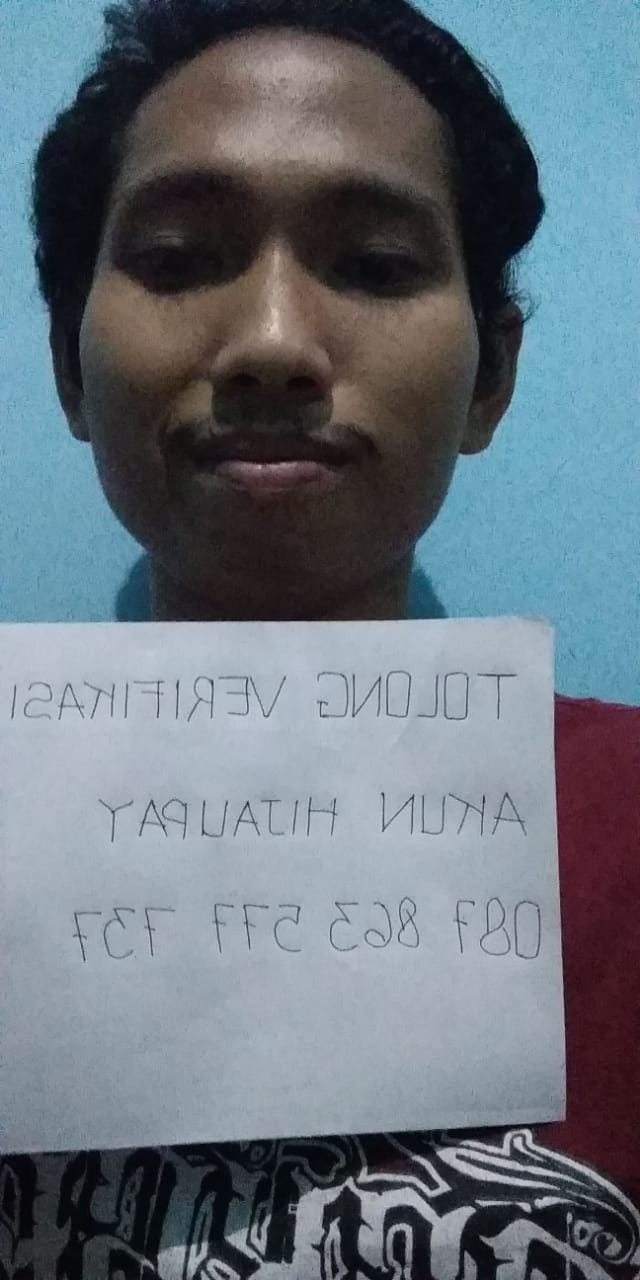 TOLONG VERIFIKASI
AKUN HIJAUPAY
087 863 577 737